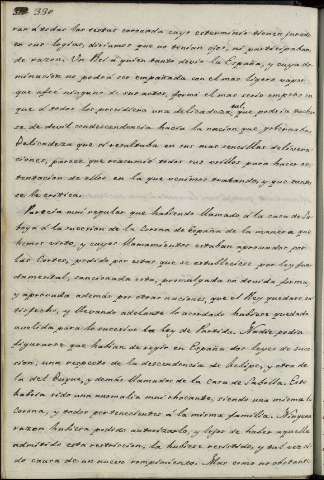 330
ran á todas las testas coronadas cuyo esterminio tienen jurado
en sus logias, diriamos que no tenian ojos, ni participaban
de razon. Un Rei á quien tanto devió la España, y cuya do
minacion no podrá ser empañada con el mas ligero vapor
que afee ninguno de sus actos, formó el mas serio empeño en
que á todos los presidiera una delicadeza tal, que podria tachar
se de devil condescendencia hacia la nacion que gobernaba.
Delicadeza que si resaltaba en sus mas sencillas delivera
ciones, parece que reasumió todos sus visos para hacer os
tentacion de ellos en la que venimos trabando, y que tanto
se le critica.
Parecia mui regular que habiendo llamado á la casa de Sa
boya á la succesion de la Corona de España de la manera que
hemos visto, y cuyos llamamientos estaban aprovados por
las Cortes, pedido por estas que se estableciese por ley fun
damental, sancionada esta, promulgada en devida forma,
y aprovada ademas por otras naciones, que el Rey quedase sa
tisfecho, y llevando adelante lo acordado hubiese quedado
anulada para lo succesivo la ley de Partida. Nadie podia
figurarse que habian de regir en España dos leyes de succe
sion, una respecto de la descendencia de Felipe, y otra de
la del Duque, y demás llamados de la Casa de Saboya. Esto
habria sido una anomalia mui chocante, siendo una misma la
Corona, y todos pertenecientes á la misma familia. Ninguna
razon hubiera podido autorizarlo, y lejos de haber aquella
admitido esta restriccion, la hubiera resistido, y tal vez si
do causa de un nuevo rompimiento. Mas como no obstante